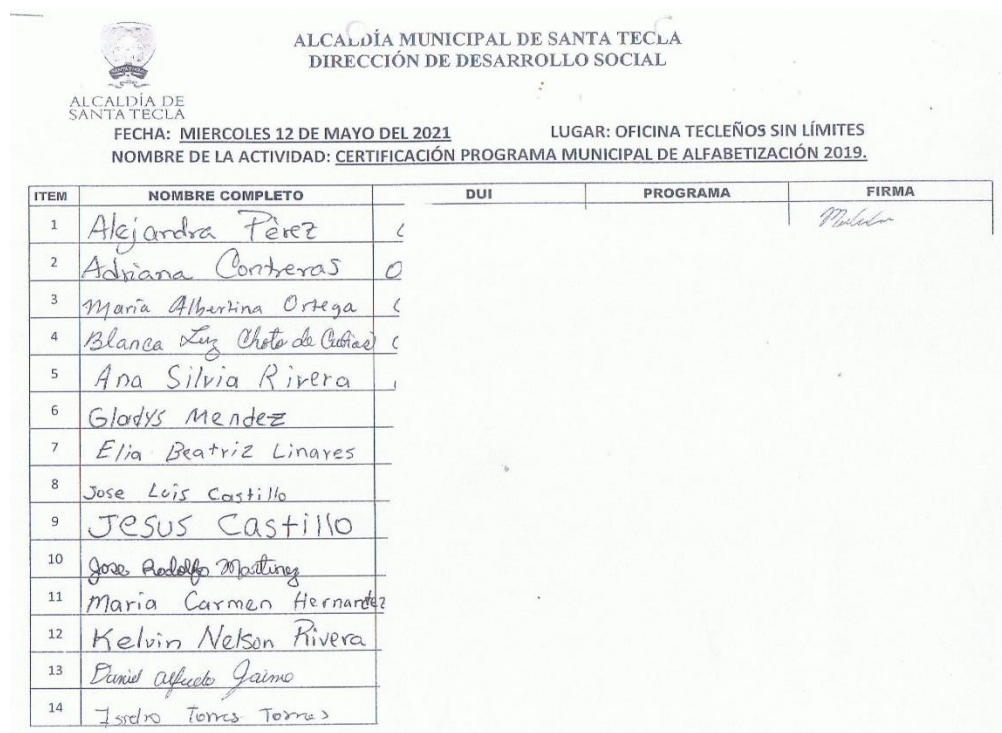 ALCALDÍA MUNICIPAL DE SANTA TECLA
DIRECCIÓN DE DESARROLLO SOCIAL
ALCALDÍA DE
SANTA TECLA
FECHA: MIERCOLES 12 DE MAYO DEL 2021 LUGAR: OFICINA TECLEÑOS SIN LÍMITES
NOMBRE DE LA ACTIVIDAD: CERTIFICACIÓN PROGRAMA MUNICIPAL DE ALFABETIZACIÓN 2019.
ITEM NOMBRE COMPLETO DUI PROGRAMA FIRMA
1 Alejandra Pèrez
2 Adriana Contreras
3 María Albertina Ortega
4 Blanca Luz Choto de Cubias
5 Ana Silvia Rivera
6 Gladys Mendez
7 Elia Beatriz Linares
8 Jose Luis Castillo
9 Jesus Castillo
10 Jose Rodolfo Martinez
11 Maria Carmen Hernandez
12 Kelvin Nelson Rivera
13 Daniel Alfredo Jaime
14 Isidro Torres Torres